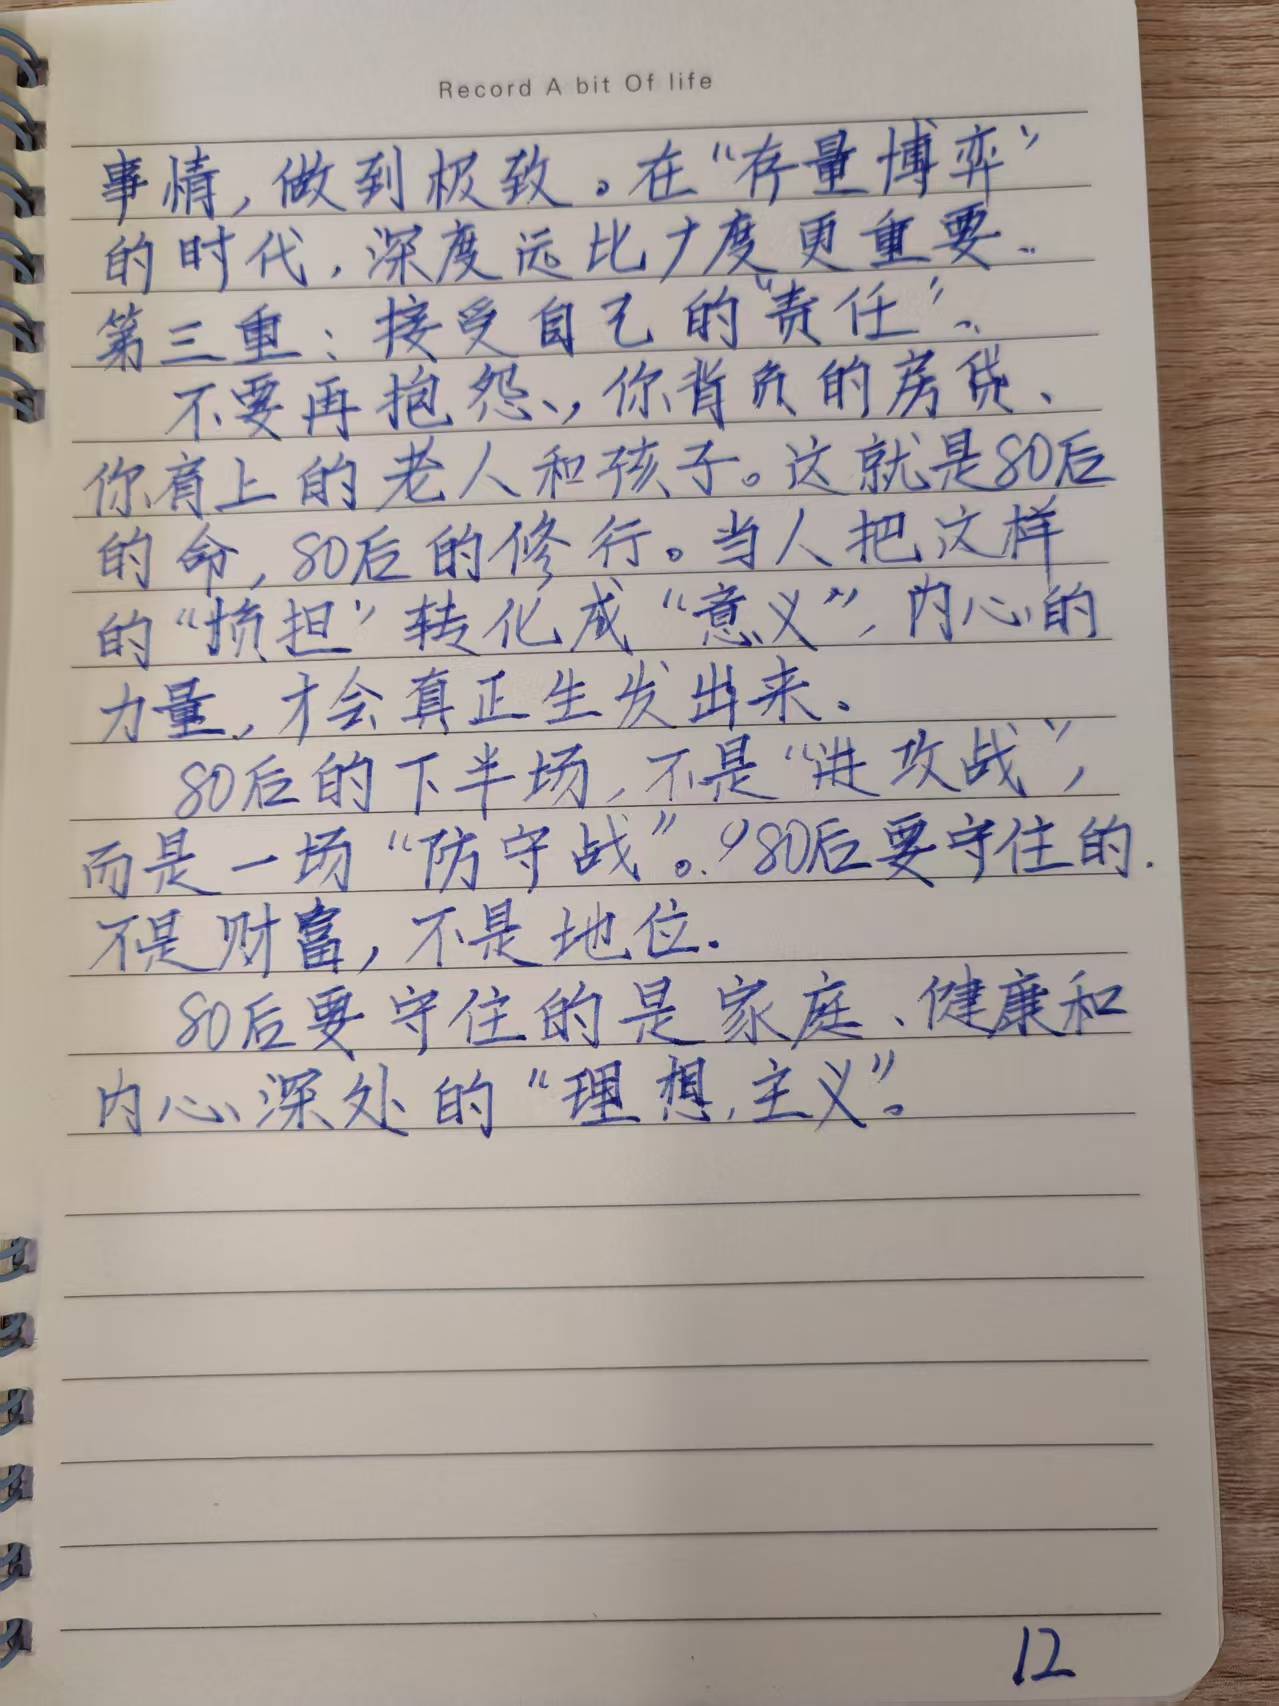 Record A bit Of life
事情，做到极致。在“存量博弈”
的时代，深度远比广度更重要。
第三重：接受自己的“责任”。
不要再抱怨，你背负的房贷、
你肩上的老人和孩子。这就是80后
的命，80后的修行。当人把这样
的“担”转化成“意义”，内心的
力量，才会真正生发出来、
80后的下半场，不是“进攻战”，
而是一场“防守战”。80后要守住的.
不是财富，不是地位.
80后要守住的是家庭、健康和
内心深处的“理想主义”。
12